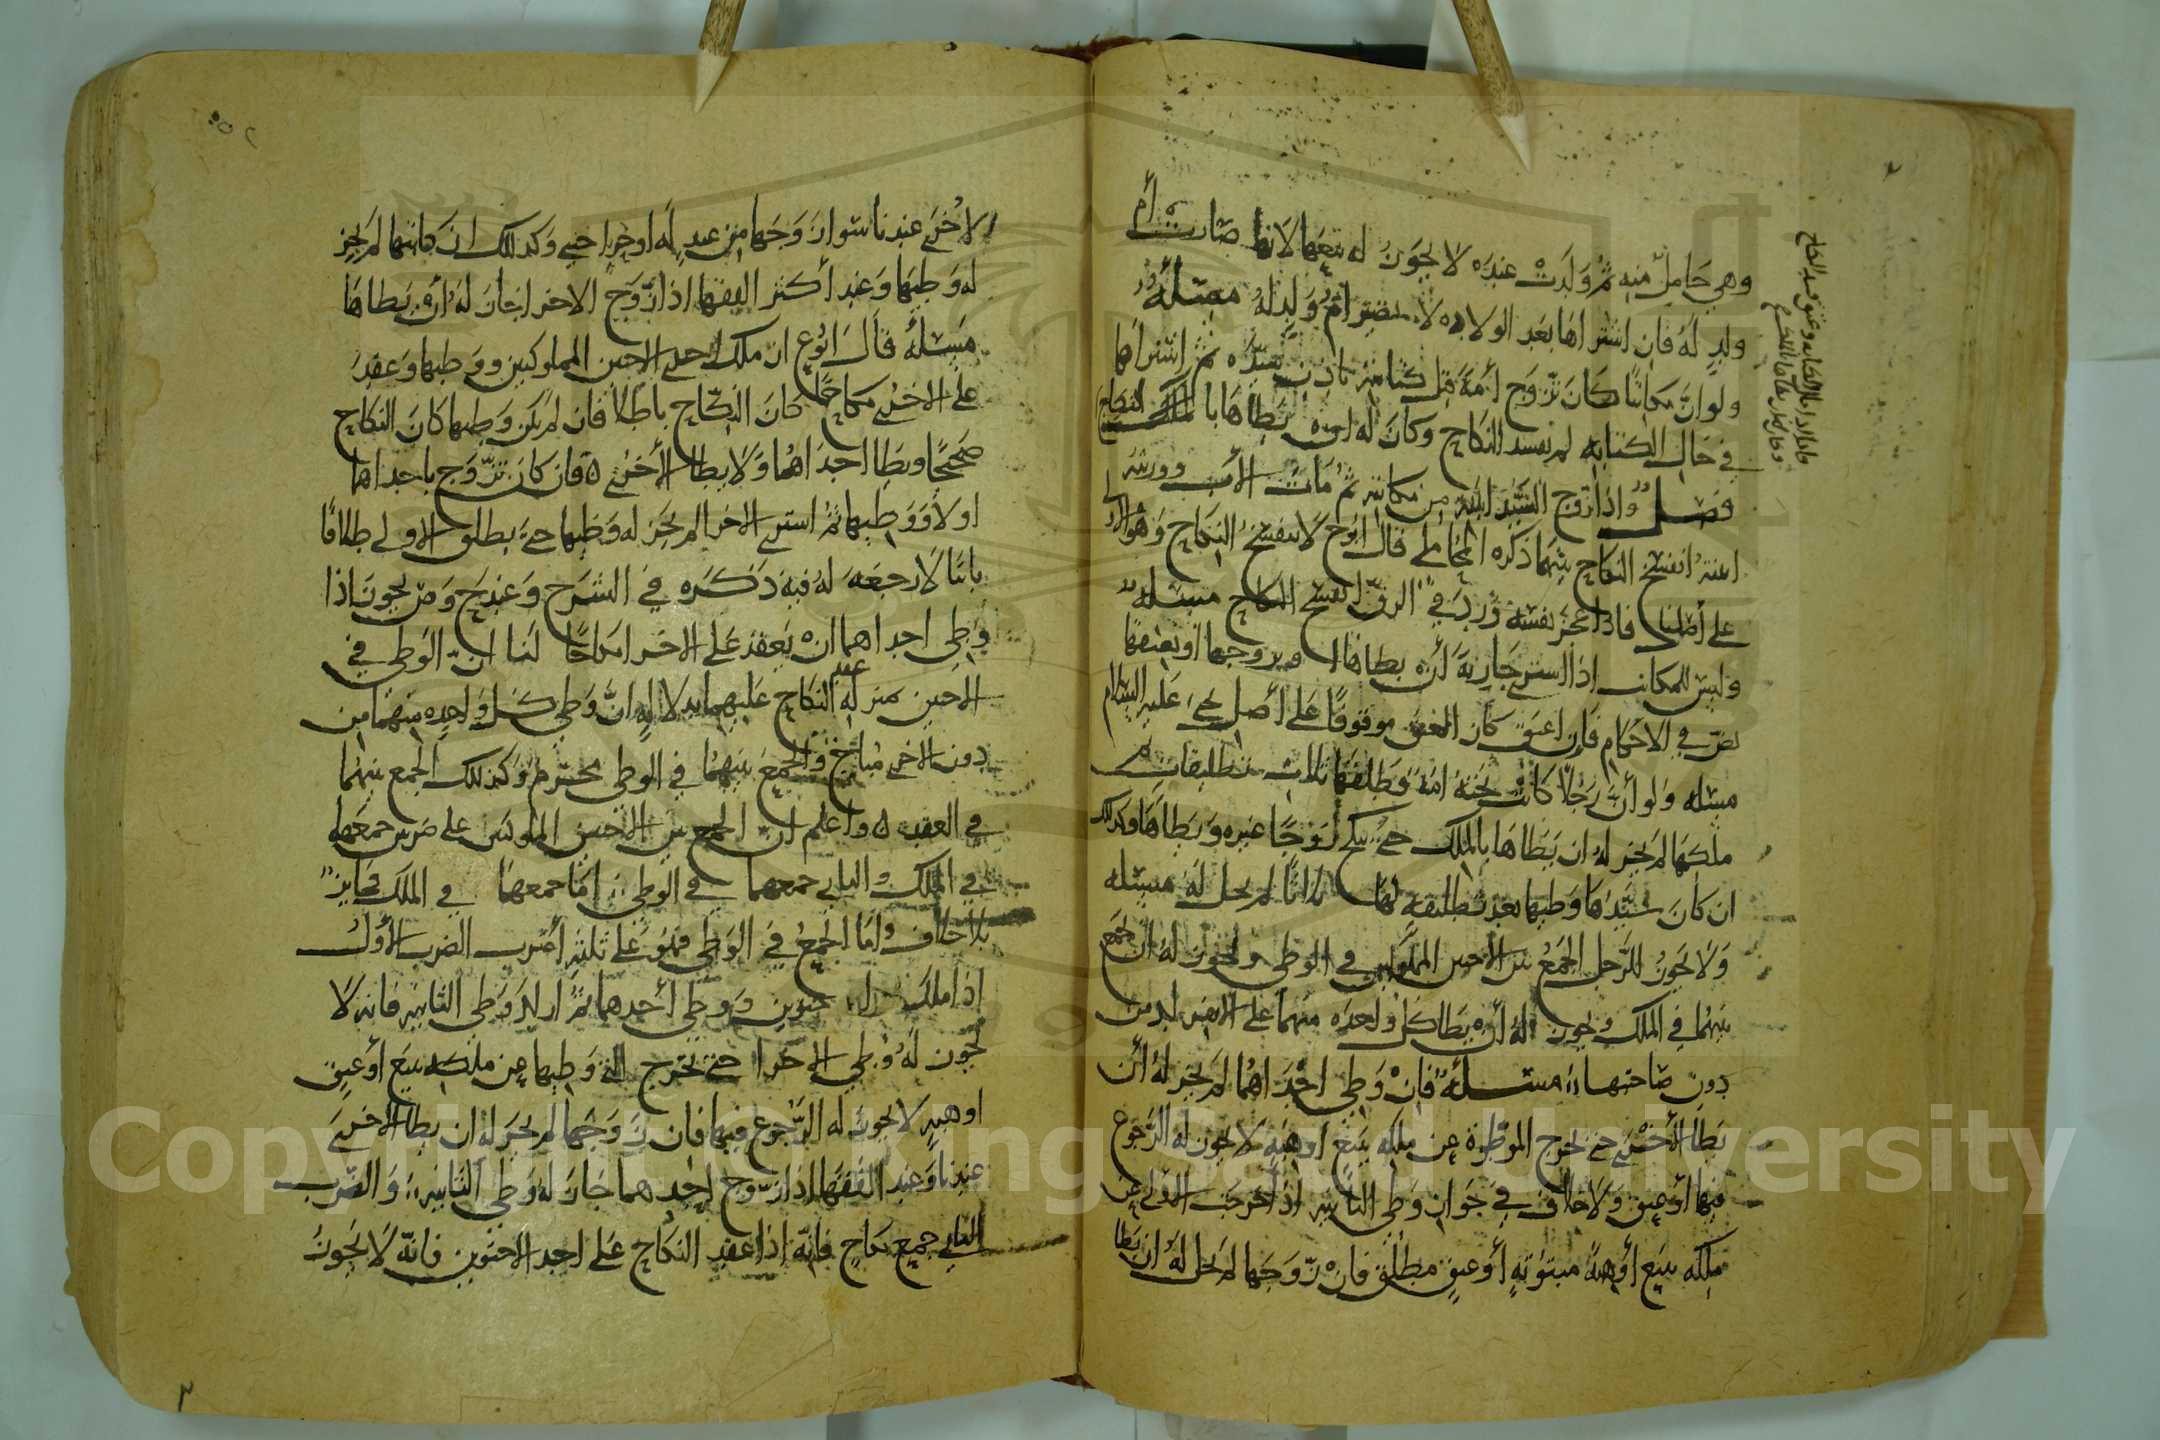 وهي حامل منه ثم ولدت عنده لا يجوز له بيعها لانها صارت أم
ولد له فان اشتراها بعد الولاده لا تصير ام ولد له مسئلة
ولو ان مكاتبا كان تزوج أمة قبل كتابته باذن سيده ثم اشتراها
في حال الكتابه لم يفسد النكاح وكان له ان يطاها بالنكاح
فصل واذا زوج السيد ابنته من مكاتبه ثم مات الأب وورثته
ابنته انفسخ النكاح بينهما ذكره قال لا ينفسخ النكاح وهو الاولى
على أصلنا فاذا عجز نفسه ورد في الرق انفسخ النكاح مسئله
وليس للمكاتب اذا اشترى جارية أن يطاها او يزوجها او يعتقها
نص في الاحكام فان اعتق كان العتق موقوفا على أصل يحيى عليه السلام
مسئله ولو أن رجلا كانت تحته امة وطلقها ثلاث تطليقات ثم
ملكها لم يجز له ان يطاها بالملك حتى تنكح زوجا غيره ويطاها وكذلك
ان كان سيدها وطيها بعد تطليقه لها ثلاثا لم يحل له مسئله
ولا يجوز للرجل الجمع بين الاختين المملوكتين في الوطي ويجوز له ان يجمع
بينهما في الملك ويجوز له أن يطا كل واحده منهما على الانفراد من
دون صاحبتها مسئلة فان وطي احداهما لم يجز له أن
يطا الأخرى حتى تخرج الموطوة عن ملكه ببيع او هبة لا يجوز له الرجوع
فيها أو عتق ولا خلاف في جواز وطي الثانيه اذا خرجت الاولى عن
ملكه ببيع أو هبة أو عتق مطلق فان زوجها لم يحل له ان يطا
الاخرى عندنا سوا زوجها من عبد له او حر اجنبي وكذلك ان كاتبها لم يجز
له وطيها وعند أكثر الفقها اذا زوج الاخرى جاز له أن يطاها
مسئلة قال ان ملك احدى الاختين المملوكتين ووطيها وعقد
على الاخرى نكاحا كان النكاح باطلا فان لم يكن وطيها كان النكاح
صحيحا ويطا احداهما ولا يطا الأخرى فان كان تزوج باحداهما
اولا ووطيها ثم اشترى الاخرى لم يجز له وطيها حتى يطلق الاولى طلاقا
باينا لا رجعة له فيه ذكره في الشرح وعند ح و ص يجوز اذا
وطي احداهما ان يعقد على الاخرى نكاحا لنا ان الوطي في
الاختين منزلة عقد النكاح عليهما بدلالة ان وطي كل واحده منهما من
دون الاخرى مباح والجمع بينهما في الوطي محرم وكذلك الجمع بينهما
في العقد واعلم ان الجمع بين الاختين المملوكتين على ضربين جمعهما
في الملك والثاني جمعهما في الوطي اما جمعهما في الملك فجايز
بلا خلاف واما الجمع في الوطي فهو على ثلثة أضرب الضرب الأول
اذا ملك اختين ووطي أحدهما ثم اراد وطي الثانيه فانه لا
يجوز له وطي الاخرى حتى تخرج التي وطيها عن ملكه ببيع أو عتق
او هبه لا يجوز له الرجوع فيها فان زوجها لم يجز له ان يطا الاخرى
عندنا وعند الفقها اذا زوج احدهما جاز له وطي الثانيه والضرب
الثاني جمع نكاح فانه اذا عقد النكاح على احد الاختين فانه لا يجوز
Copyright © King Saud University